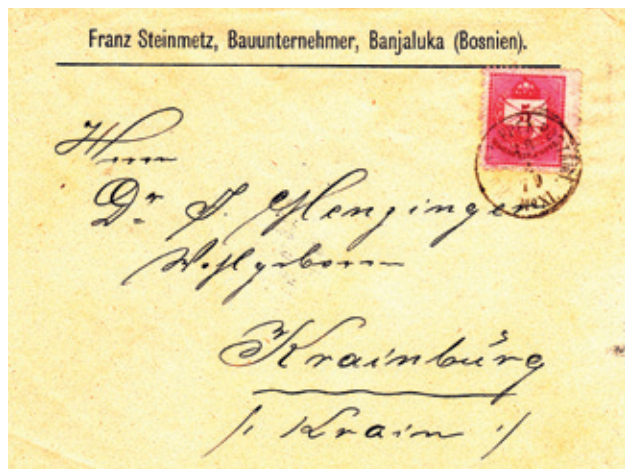 Franz Steinmetz, Bauunternehmer, Banjaluka (Bosnien).
5
Herrn
Dr. J. Menzinger
Wohlgeboren
Krainburg
/: Krain :/